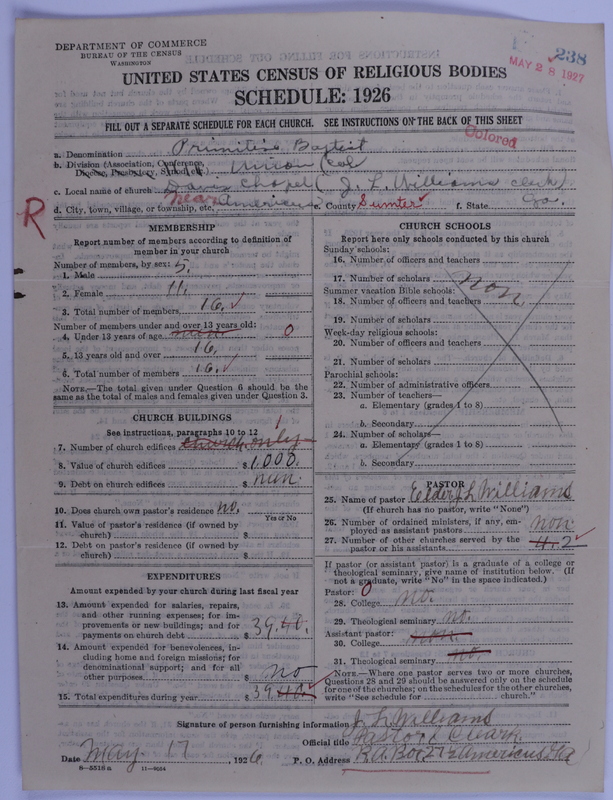 DEPARTMENT OF COMMERCE
BUREAU OF THE CENSUS
WASHINGTON
238
MAY 28 1927
UNITED STATES CENSUS OF RELIGIOUS BODIES
SCHEDULE: 1926
FILL OUT A SEPARATE SCHEDULE FOR EACH CHURCH. SEE INSTRUCTIONS ON THE BACK OF THIS SHEET
Colored
a. Denomination Primitive Baptist
b. Division (Association, Conference, Diocese, Presbytery, Synod, etc.) Union (Col
c. Local name of church Davis Chapel (J. L. Williams clerk)
d. City, town, village, or township, etc. near Americus e. County Sumter f. State Ga.
R
MEMBERSHIP
Report number of members according to definition of member in your church
Number of members, by sex:
1. Male 5.
2. Female 11.
3. Total number of members 16.
Number of members under and over 13 years old:
4. Under 13 years of age 0
5. 13 years old and over 16.
6. Total number of members 16.
NOTE.—The total given under Question 6 should be the same as the total of males and females given under Question 3.
CHURCH BUILDINGS
See instructions, paragraphs 10 to 12
7. Number of church edifices church only 1
8. Value of church edifices $ 1,000.
9. Debt on church edifices $ nun
10. Does church own pastor's residence? no.
Yes or No
11. Value of pastor's residence (if owned by church) $
12. Debt on pastor's residence (if owned by church) $
EXPENDITURES
Amount expended by your church during last fiscal year
13. Amount expended for salaries, repairs, and other running expenses; for improvements or new buildings; and for payments on church debt $ 39.40.
14. Amount expended for benevolences, including home and foreign missions; for denominational support; and for all other purposes $ no
15. Total expenditures during year $ 39.40.
CHURCH SCHOOLS
Report here only schools conducted by this church
Sunday schools:
16. Number of officers and teachers
17. Number of scholars
non
Summer vacation Bible schools:
18. Number of officers and teachers
19. Number of scholars
Week-day religious schools:
20. Number of officers and teachers
21. Number of scholars
Parochial schools:
22. Number of administrative officers
23. Number of teachers—
a. Elementary (grades 1 to 8)
b. Secondary
24. Number of scholars—
a. Elementary (grades 1 to 8)
b. Secondary
PASTOR
25. Name of pastor Elder J L Williams
(If church has no pastor, write "None")
26. Number of ordained ministers, if any, employed as assistant pastors non
27. Number of other churches served by the pastor or his assistants 4. 2
If pastor (or assistant pastor) is a graduate of a college or theological seminary, give name of institution below. (If not a graduate, write "No" in the space indicated.)
Pastor: 0
28. College no.
29. Theological seminary no.
Assistant pastor:
30. College
31. Theological seminary no.
NOTE.—Where one pastor serves two or more churches, Questions 28 and 29 should be answered only on the schedule for one of the churches; on the schedules for the other churches, write "See schedule for church."
Signature of person furnishing information J. L Williams
Official title Pastor & Clerk.
Date May 17, 1926 P. O. Address
8—5518 a 11—8604